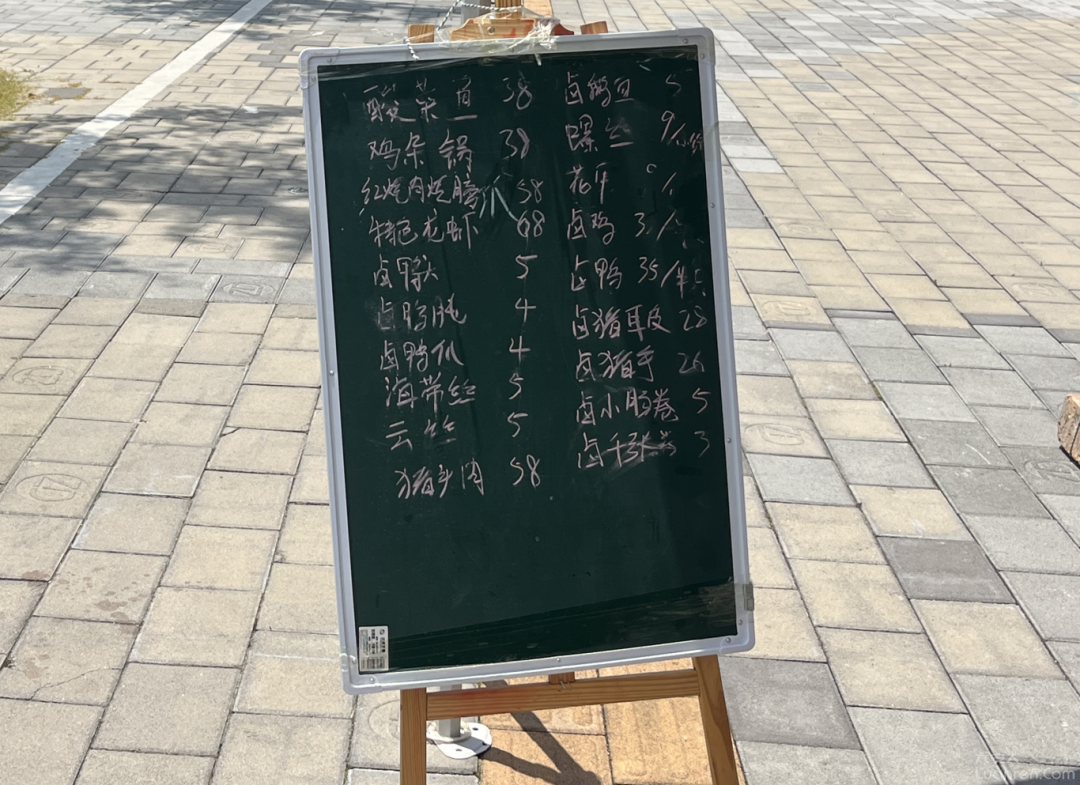 酸菜鱼 38
鸡杂锅 38
红烧肉烧 58
特色龙虾 68
卤鸭头 5
卤鸭肫 4
卤鸭爪 4
海带丝 5
云丝 5
猪头肉 58
卤 5
螺丝 9/小份
花生
卤鸡 3
卤鸭 35/半只
卤猪耳皮 28
卤猪手 26
卤小肠卷 5
卤千张 3